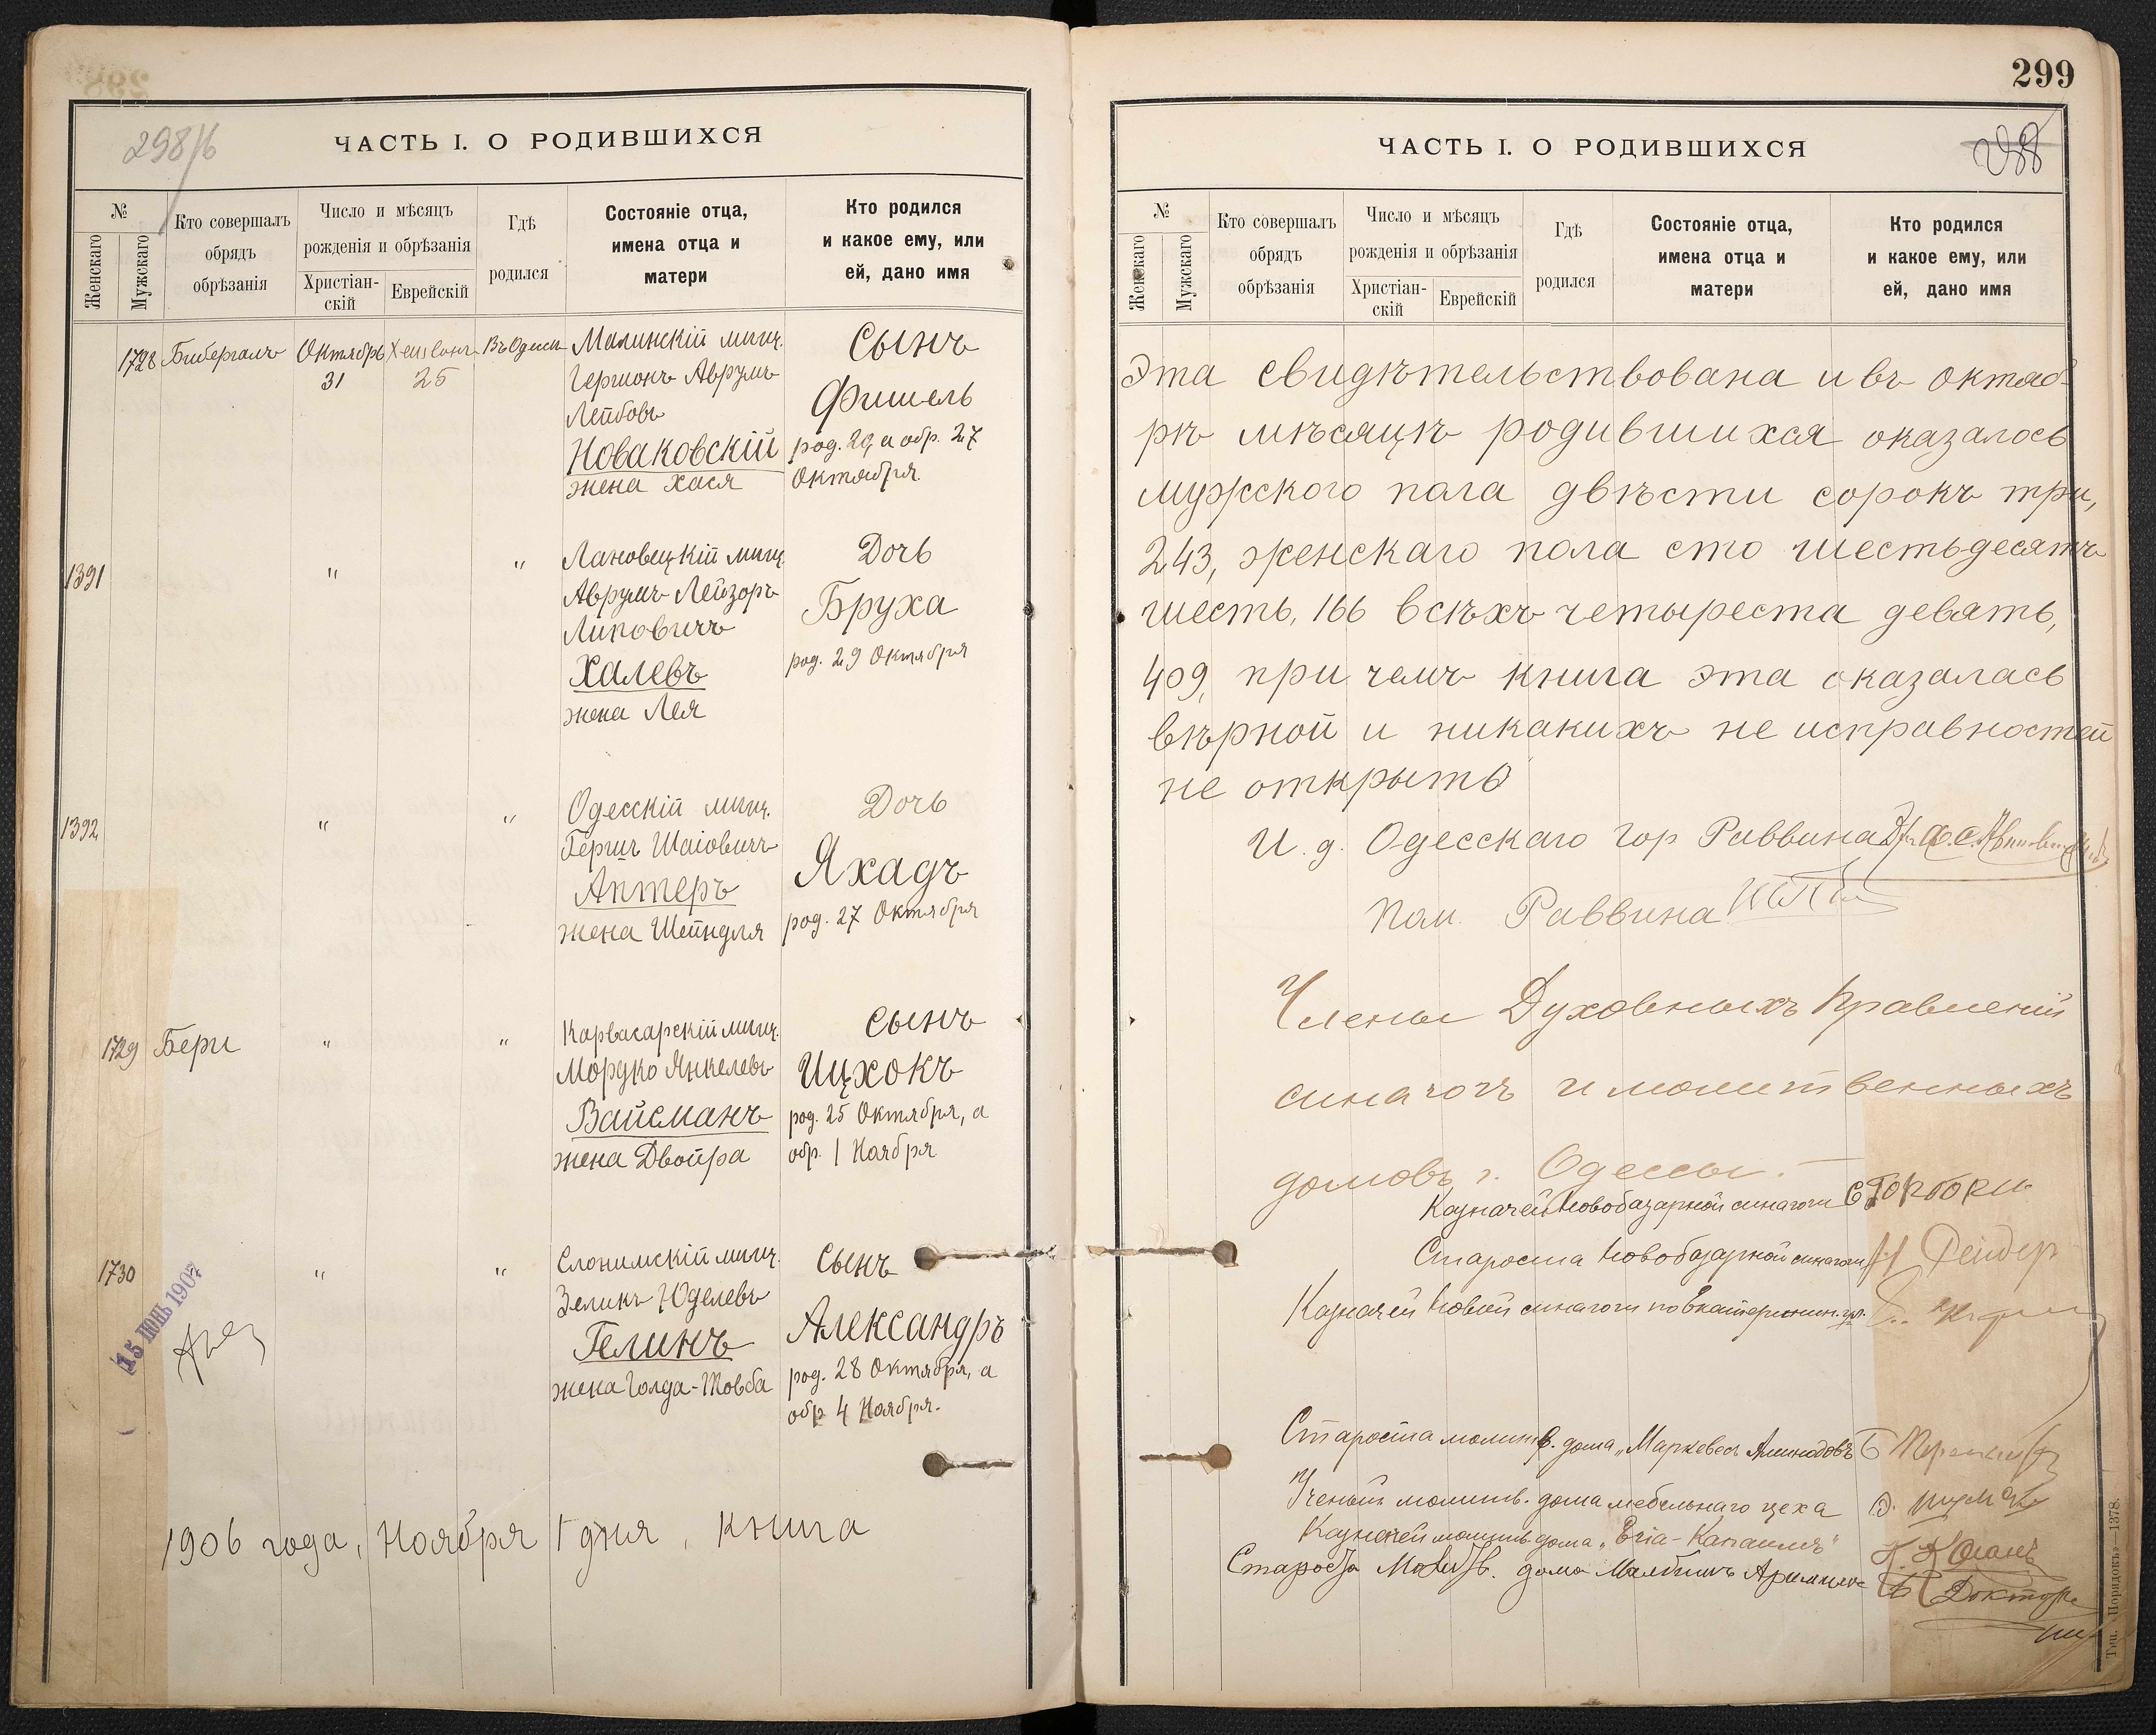 298/б
ЧАСТЬ I. О РОДИВШИХСЯ
№
Женскаго
Мужскаго
Кто совершалъ
обрядъ
обрѣзанія
Число и мѣсяцъ
рожденія и обрѣзанія
Христіан-
скій
Еврейскій
Гдѣ
родился
Состояніе отца,
имена отца и
матери
Кто родился
и какое ему, или
ей, дано имя
1728 Бибергалъ Октябрь 31 25 Въ Одессѣ
мѣщ.
Гершонъ Аврумъ
Лейбовъ
Новаковскій
жена Хася
Сынъ
Фишель
род. 20, а обр. 27
Октября.
1391 " "
Лановецкій мѣщ.
Аврумъ Лейзоръ
Липовичъ
Халевъ
жена Лея
Дочь
Бруха
род. 29 Октября
1392 " "
Одесскій мѣщ.
Гершъ Шаіовичъ
Аптеръ
жена Шейндля
Дочь
Яхадъ
род. 27 Октября
1729 Бери " "
Карвасарскій мѣщ.
Мордко Янкелевъ
Вайсманъ
жена Двойра
Сынъ
Ицхокъ
род. 25 Октября, а
обр. 1 Ноября
1730 " "
Слонимскій мѣщ.
Зеликъ Юделевъ
Гелинъ
жена Голда-Товба
Сынъ
Александръ
род. 28 Октября, а
обр 4 Ноября.
15 ІЮНЬ 1907
1906 года, Ноября 1 дня, книга
299
ЧАСТЬ I. О РОДИВШИХСЯ
№
Женскаго
Мужскаго
Кто совершалъ
обрядъ
обрѣзанія
Число и мѣсяцъ
рожденія и обрѣзанія
Христіан-
скій
Еврейскій
Гдѣ
родился
Состояніе отца,
имена отца и
матери
Кто родился
и какое ему, или
ей, дано имя
Эта свидѣтельствована и въ октяб-
рѣ мѣсяцѣ родившихся оказалось
мужского пола двѣсти сорокъ три,
243, женскаго пола сто шестьдесятъ
шесть, 166 всѣхъ четыреста девять,
409, при чемъ книга эта оказалась
вѣрной и никакихъ не исправностей
не открыто
И. д. Одесскаго Гор Раввина
Пом. Раввина
Члены Духовныхъ Правленій
синагогъ и молитвенныхъ
домовъ г. Одессы.
Казначей Новобазарной синагоги
Староста Новобазарной синагоги
Казначей Новой синагоги по Екатеринин. ул.
Староста молитв. дома
Ученый молитв. дома мебельнаго цеха
Казначей молитв. дома
Староста Молитв. дома
Докторъ
Тип. «Порядокъ»—1378.